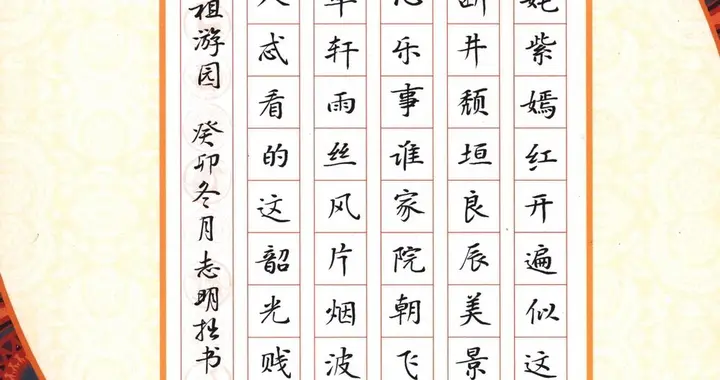 姹紫嫣红开遍似这
断井颓垣良辰美景
心乐事谁家院朝飞
翠轩雨丝风片烟波
人忒看的这韶光贱
祖游园 癸卯冬月志明拙书